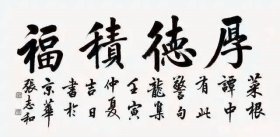 厚德積福
菜根
譚中
有此
警句
龍集
壬寅
仲夏
吉日
書於
京華
張志和